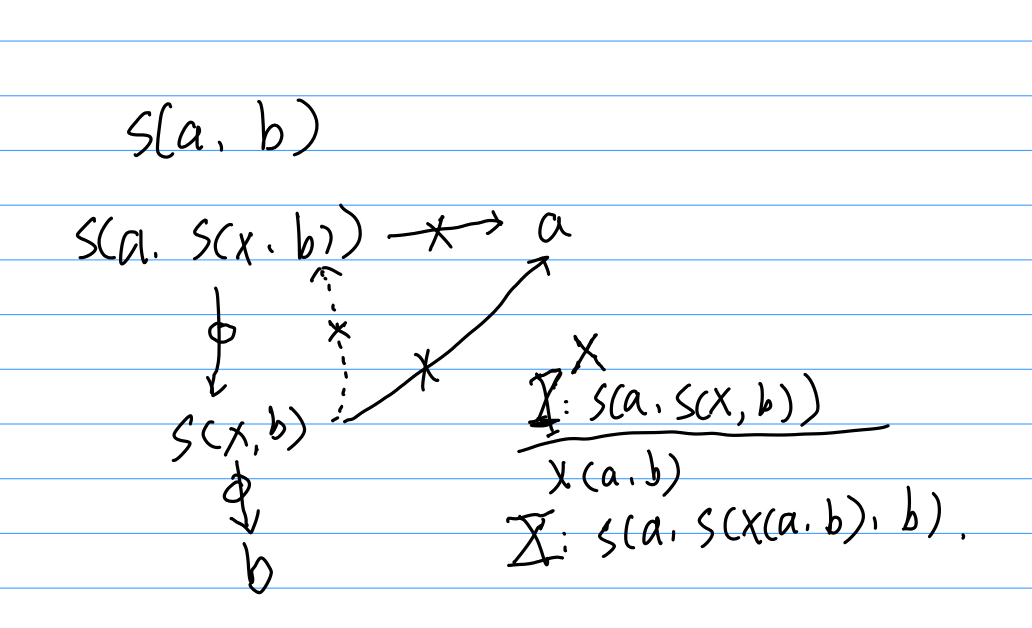 s(a, b)
s(a, s(x, b)) → a
s(x, b)
b
X
X: s(a, s(x, b))
x(a, b)
X: s(a, s(x(a, b), b).